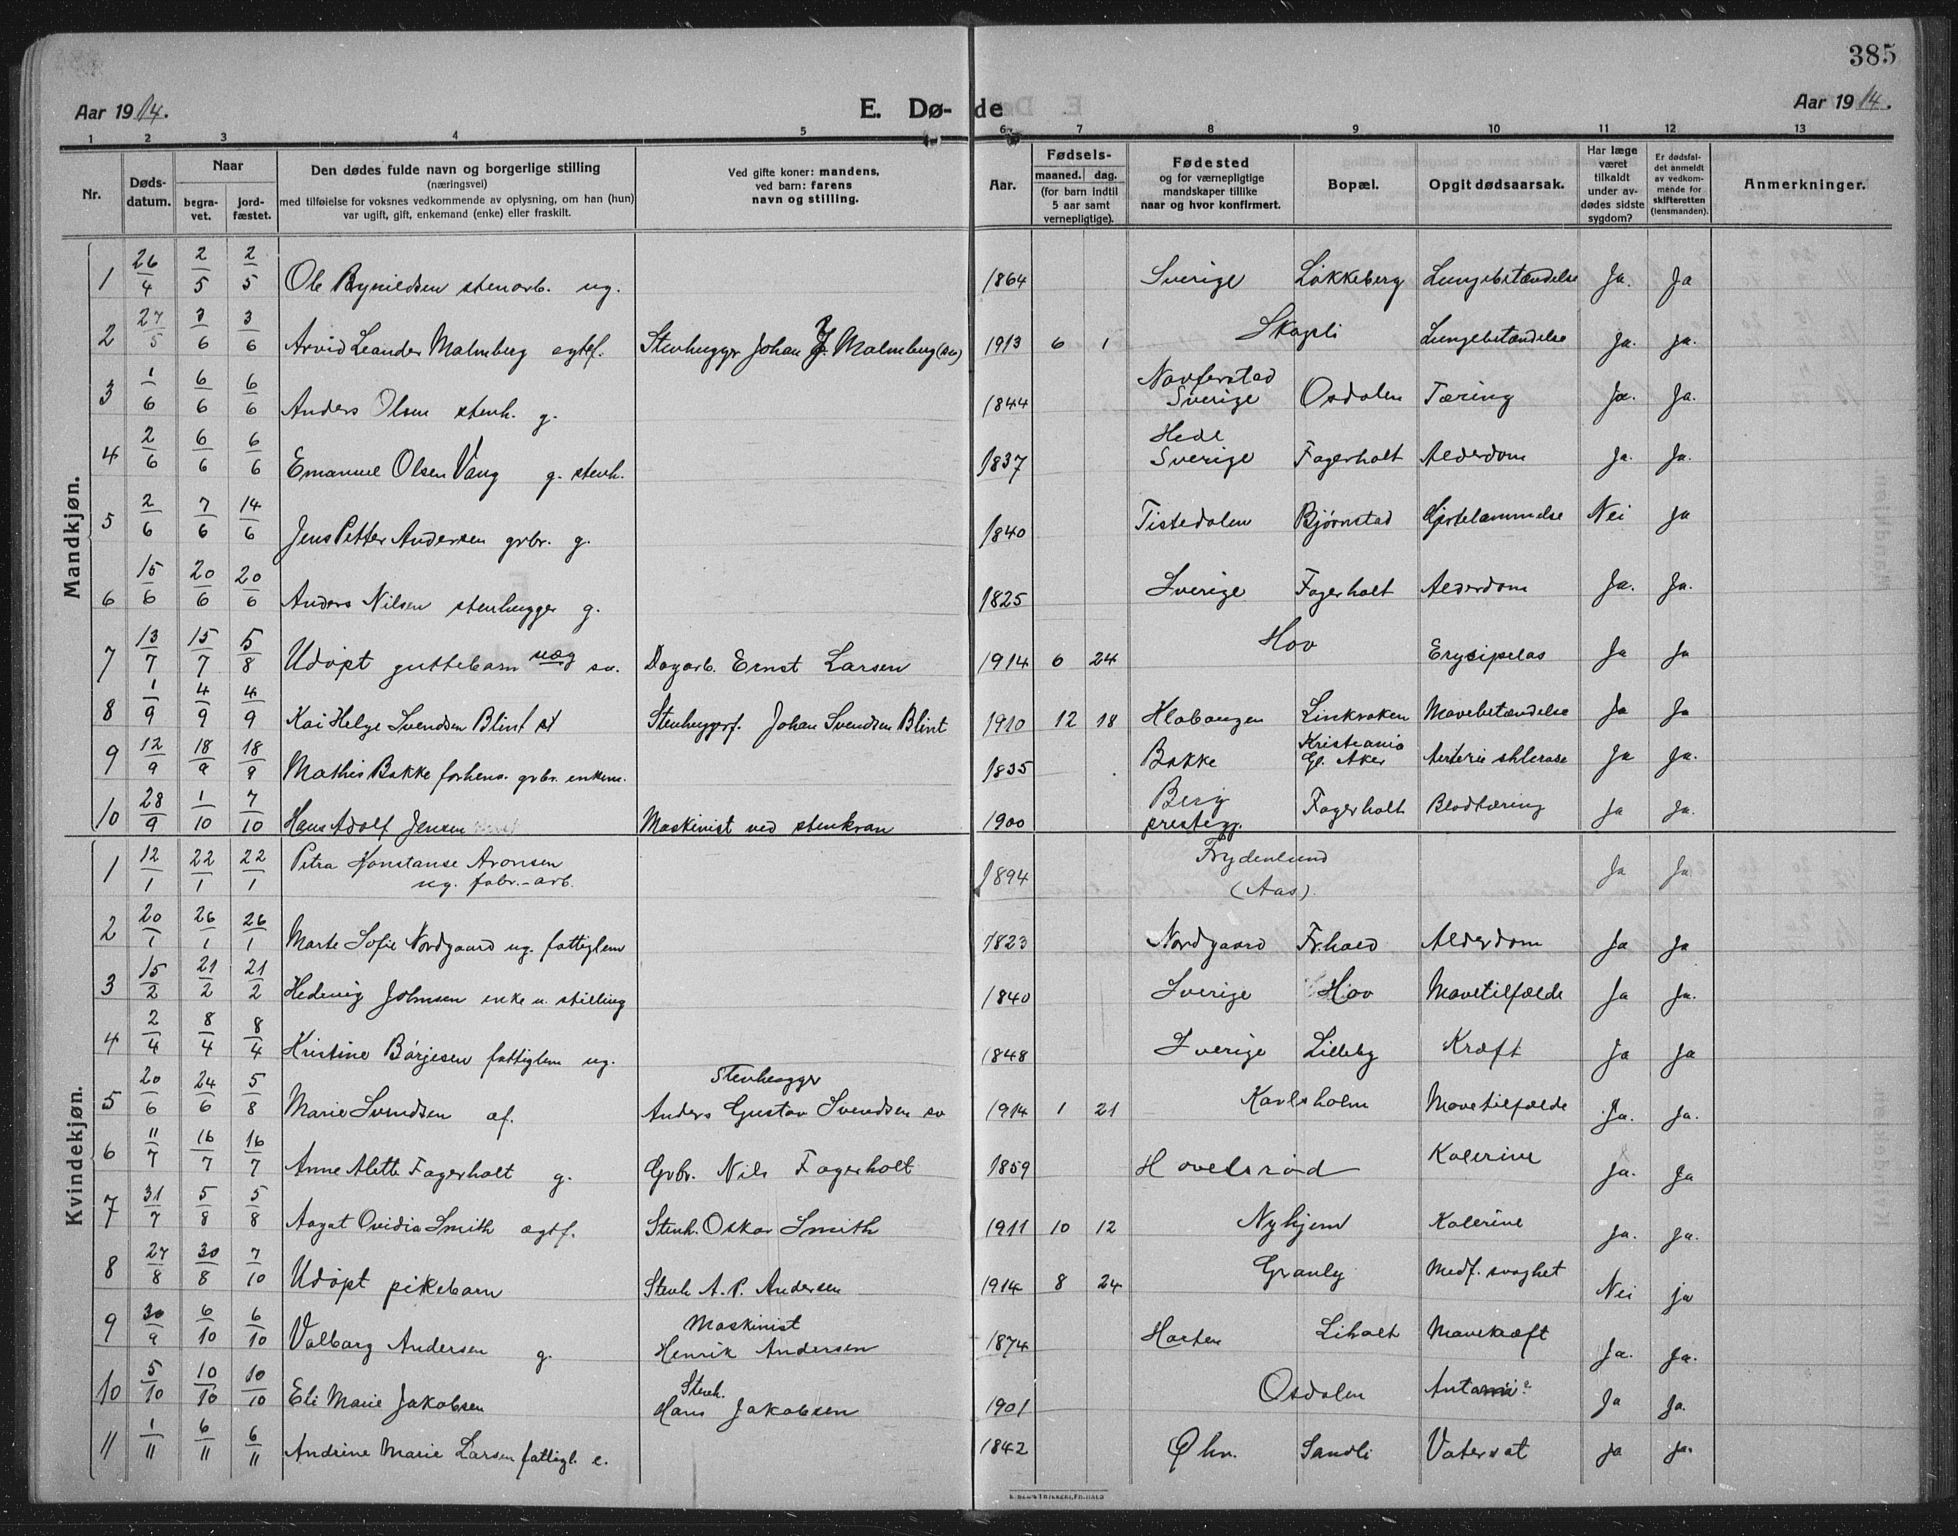 385
Aar 1914.
E. Dø- de
Aar 1914.
1 2 3 4 5 6 7 8 9 10 11 12 13
Nr.
Døds-
datum.
Naar
begra-
vet.
jord-
fæstet.
Den dødes fulde navn og borgerlige stilling
(næringsvei)
med tilføielse for voksnes vedkommende av oplysning, om han (hun)
var ugift, gift, enkemand (enke) eller fraskilt.
Ved gifte koner: mandens,
ved barn: farens
navn og stilling.
Aar.
Fødsels-
maaned. dag.
(for barn indtil
5 aar samt
vernepligtige).
Fødested
og for værnepligtige
mandskaper tillike
naar og hvor konfirmert.
Bopæl.
Opgit dødsaarsak.
Har læge
været
tilkaldt
under av-
dødes sidste
sygdom?
Er dødsfal-
det anmeldt
av vedkom-
mende for
skifteretten
(lensmanden).
Anmerkninger.
Mandkjøn.
1 26/4 2/5 2/5 Ole Bynildsen stenarb. ug. 1864 Sverige Løkkeberg Lungebetændelse Ja. Ja
2 27/5 3/6 3/6 Arvid Leander Malmberg egtf. Stenhugger Johan Malmberg (sv) 1913 6 1 Skogli Lungebetændelse Ja. Ja.
3 1/6 6/6 6/6 Anders Olsen stenh. g. 1844 Navferstad
Sverige Osdalen Tæring Ja. Ja.
4 2/6 6/6 6/6 Emanuel Olsen Vang g. stenh. 1837 Hede
Sverige Fagerholt Alderdom Ja. Ja.
5 2/6 7/6 14/6 Jens Petter Andersen grbr. g. 1840 Tistedalen Bjørnstad Hjertelammelse Nei Ja
6 15/6 20/6 20/6 Anders Nilsen stenhugger g. 1825 Sverige Fagerholt Alderdom Ja. Ja.
7 13/7 15/7 5/8 Udøpt guttebarn uæg sv. Dagarb. Ernst Larsen 1914 6 24 Hov Erysipelas Ja Ja
8 1/9 4/9 4/9 Kai Helge Svendsen Blint Stenhuggerf. Johan Svendsen Blint 1910 12 18 Klabaugen Linkroken Mavebetændelse Ja Ja
9 12/9 18/9 18/9 Mathis Bakke forhenv. grbr. enkem. 1835 Bakke Kristiania
Gl. Aker Arterie sklerose Ja Ja.
10 28/9 1/10 7/10 Hans Adolf Jensen Maskinist ved stenkran 1900 Berg
prestegj. Fagerholt Blodtæring Ja Ja.
Kvindekjøn.
1 12/1 22/1 22/1 Petra Konstanse Aronsen
ug. fabr.-arb. 1894 Frydenlund
(Aas). Ja Ja
2 20/1 26/1 26/1 Marte Sofie Nordgaard ug. fattiglem 1823 Nordgaard Fr.hald Alderdom Ja Ja
3 15/2 21/2 21/2 Hedevig Johnsen enke u. stilling 1840 Sverige Hov Mavetilfælde Ja Ja.
4 2/4 8/4 8/4 Kristine Børjesen fattiglem ug. 1848 Sverige Lilleby Kræft Ja Ja
5 20/6 24/6 5/8 Marie Svendsen æf. Stenhugger
Anders Gustav Svendsen sv 1914 1 21 Karlsholm Mavetilfælde Ja. Ja.
6 11/7 16/7 16/7 Anne Alette Fagerholt g. Grbr. Nils Fagerholt 1859 Hovelsrød Kolerine Ja. Ja
7 31/7 5/8 5/8 Aagot Ovidia Smith egtf. Stenh. Oskar Smith 1911 10 12 Nyhjem Kolerine Ja. Ja.
8 27/8 30/8 7/10 Udøpt pikebarn Stenh A. P. Andersen 1914 8 24 Granly Medf. svaghet Nei ja
9 30/9 6/10 6/10 Valborg Andersen g. Maskinist
Henrik Andersen 1874 Horten Liholt Mavekræft Ja. Ja.
10 5/10 10/10 10/10 Eli Marie Jakobsen Stenh.
Hans Jakobsen 1901 Osdalen Ja Ja.
11 1/11 6/11 6/11 Andrine Marie Larsen fattigl. e. 1842 Øhn. Sandli Vatersot Ja Ja.